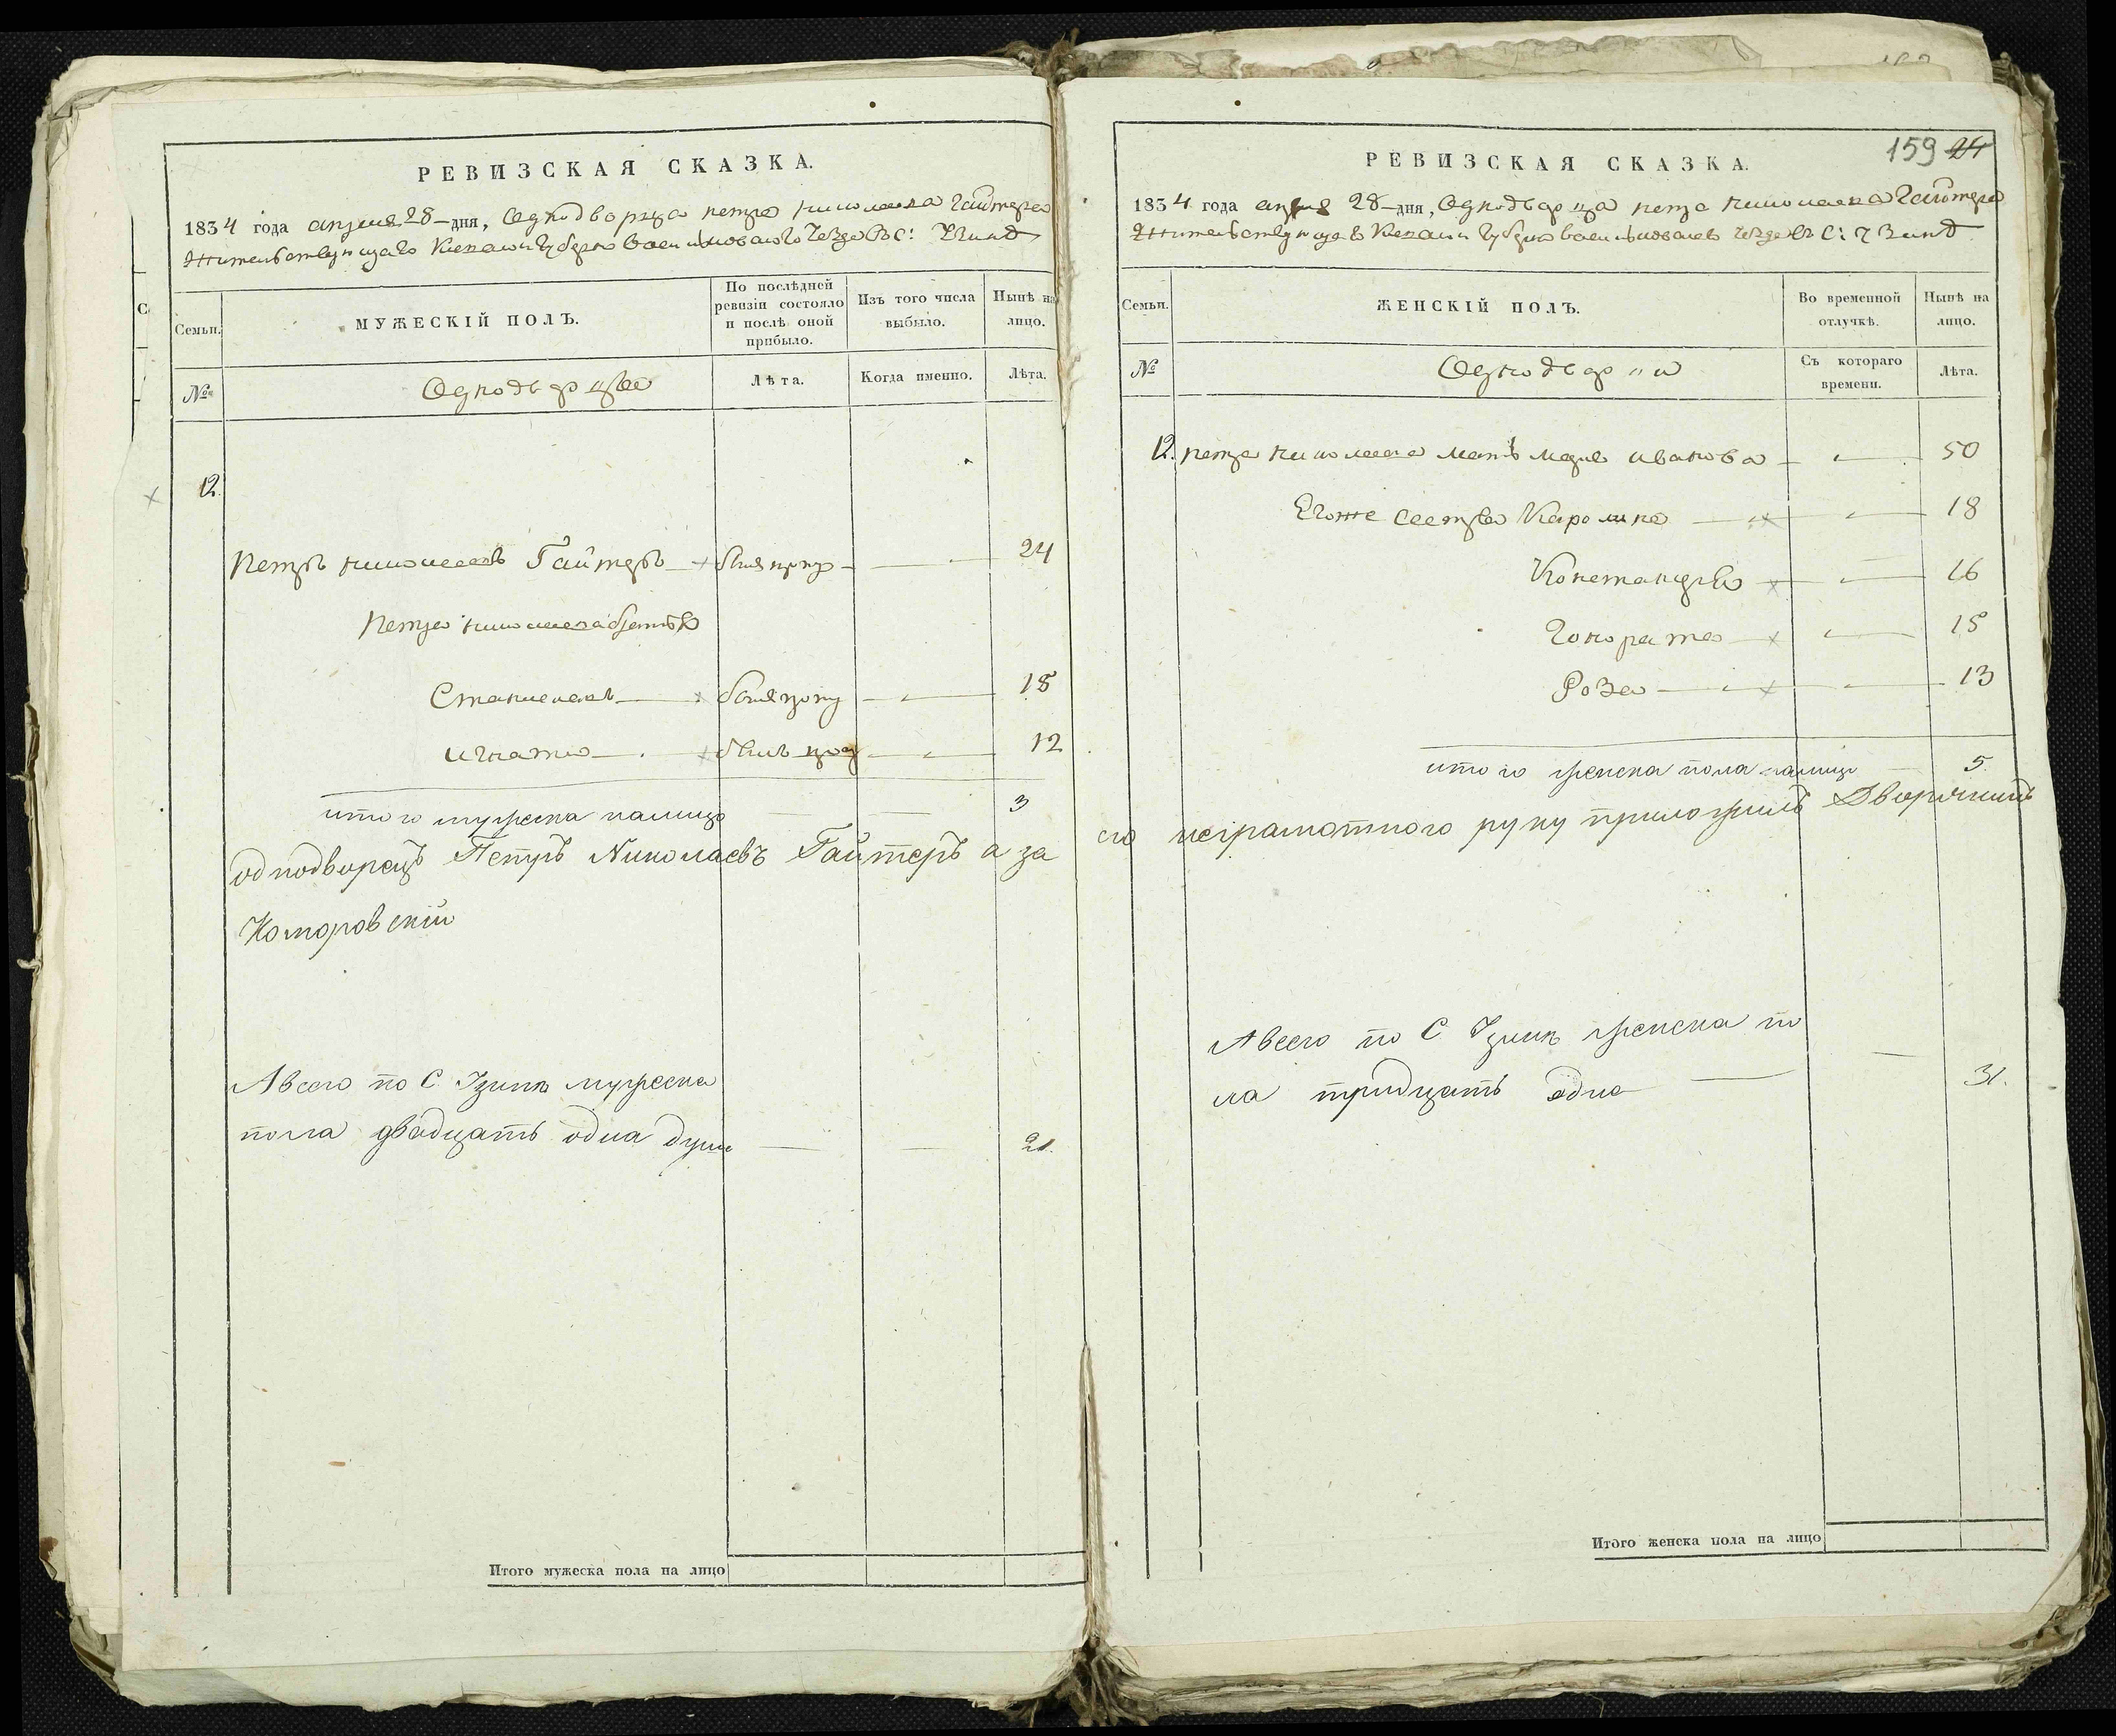 РЕВИЗСКАЯ СКАЗКА.
1834 года апреля 28 дня, Однодворца петра николаева Гайтера
Жительствующаго Киевской Губернии Васильковского уезда В С:
Семьи.
МУЖЕСКІЙ ПОЛЪ.
По послѣдней ревизіи состояло и послѣ оной прибыло.
Изъ того числа выбыло.
Нынѣ на лицо.
№
Однодворцы
Лѣта.
Когда именно.
Лѣта.
12.
Петръ николаевъ Гайтеръ 24
Петра николаева братья
Станиславъ 18
игнатий 12
итого мужеска налицо 3
однодворецъ Петръ Николаевъ Гайтеръ а за
Коморовскій
А всего по С мужеска
пола двадцать одна душа 21.
Итого мужеска пола на лицо
РЕВИЗСКАЯ СКАЗКА.
159 24
1834 года апреля 28 дня, Однодворца петра николаева Гайтера
Жительствующаго Киевской Губернии Васильковского уезда в С:
Семьи.
ЖЕНСКІЙ ПОЛЪ.
Во временной отлучкѣ.
Нынѣ на лицо.
№
Однодворки
Съ котораго времени.
Лѣта.
12. петра николаева мать марья иванова 50
Его же сестры Каролина 18
Констанция 16
Гонората 15
Роза 13
итого женска пола налицо 5
его неграмотного руку приложилъ Дворянинъ
А всего по С женска по
ла тридцать одна 31.
Итого женска пола на лицо